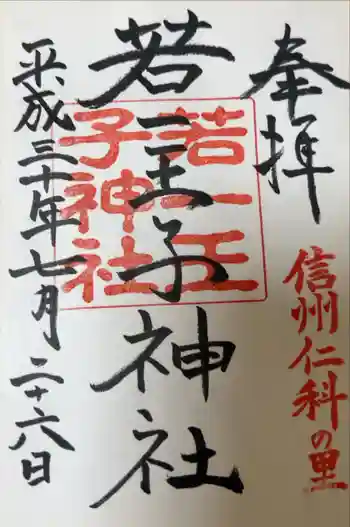 奉拝
信州仁科の里
若一王子神社
若一王子神社
平成三十年七月二十六日